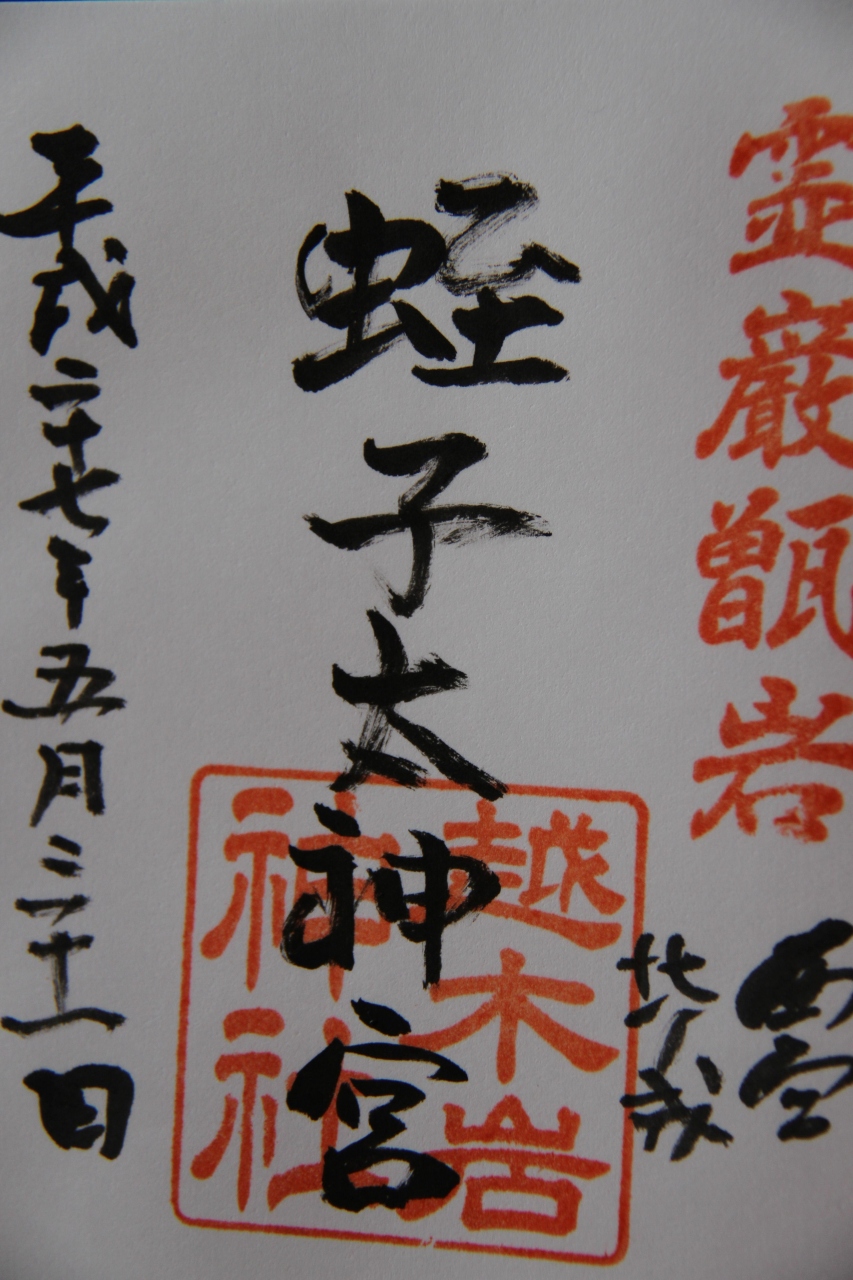 霊巌甑岩
西宮
北ノ戎
蛭子太神宮
越木岩
神社
平成二十七年五月三十一日